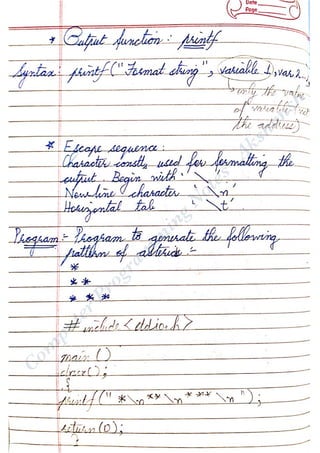 Date
Page
* Output function : printf
Syntax: printf ("Format string", variable 1, var 2...)
only the value
of variable (not
the address)
* Escape sequence :
Character consts used for formatting the
output. Begin with '\'
New line character '\n'
Horizontal tab '\t'
Program :- Program to generate the following
pattern of asterisk :-
*
* *
* * *
# include <ddio.h>
main ()
clrscr();
{
printf (" *\n**\n***\n ");
return (0);
}
Computer Programming Notes